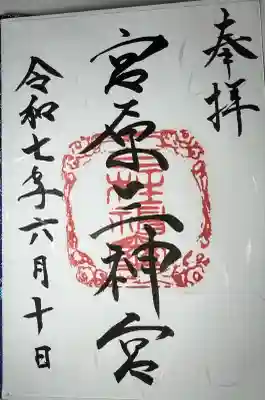 奉拝
宮原三神宮
令和七年六月十日